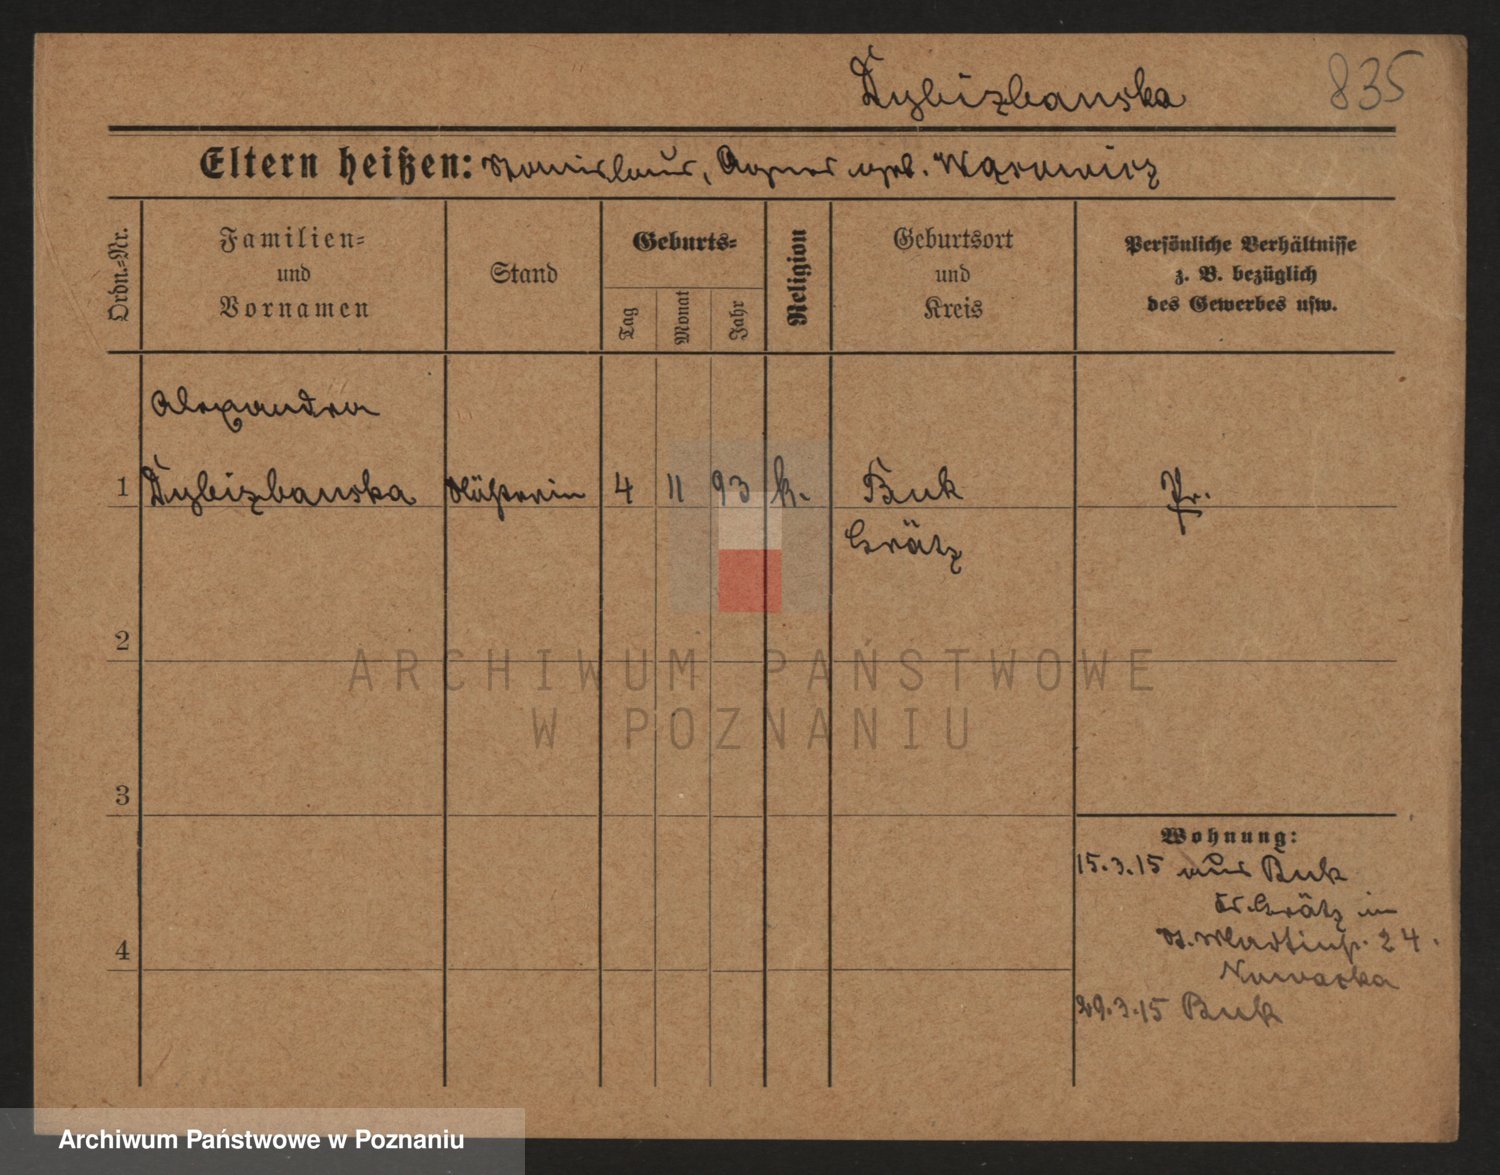 Dybizbanska
835
Eltern heißen: Stanislaus, Agnes geb.
Ordn.=Nr.
Familien=
und
Vornamen
Stand
Geburts=
Tag
Monat
Jahr
Religion
Geburtsort
und
Kreis
Persönliche Verhältnisse
z. B. bezüglich
des Gewerbes usw.
Alexandra
1 Dybizbanska 4 11 93 k. Buk Pr.
Grätz
2
3
4
Wohnung:
15.3.15 aus Buk
Kr. Grätz in
24.
Nowacka
29.3.15 Buk
ARCHIWUM PAŃSTWOWE
W POZNANIU
Archiwum Państwowe w Poznaniu